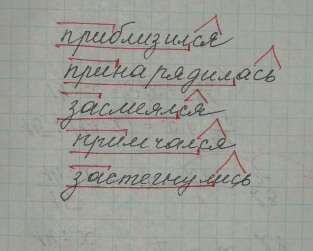 приблизился
принарядилась
засмеялся
примчался
застегнулись